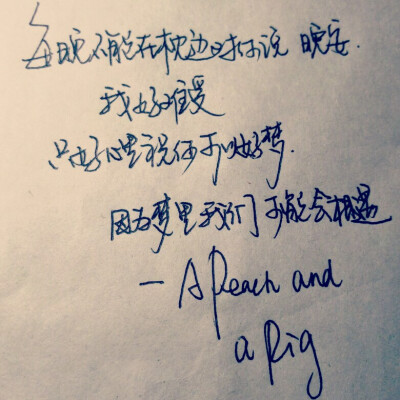 每晚不能在枕边对你说 晚安.
我好难受
只好心里说你可以好梦.
因为梦里我们可能会相遇
— A Peach and
a Pig